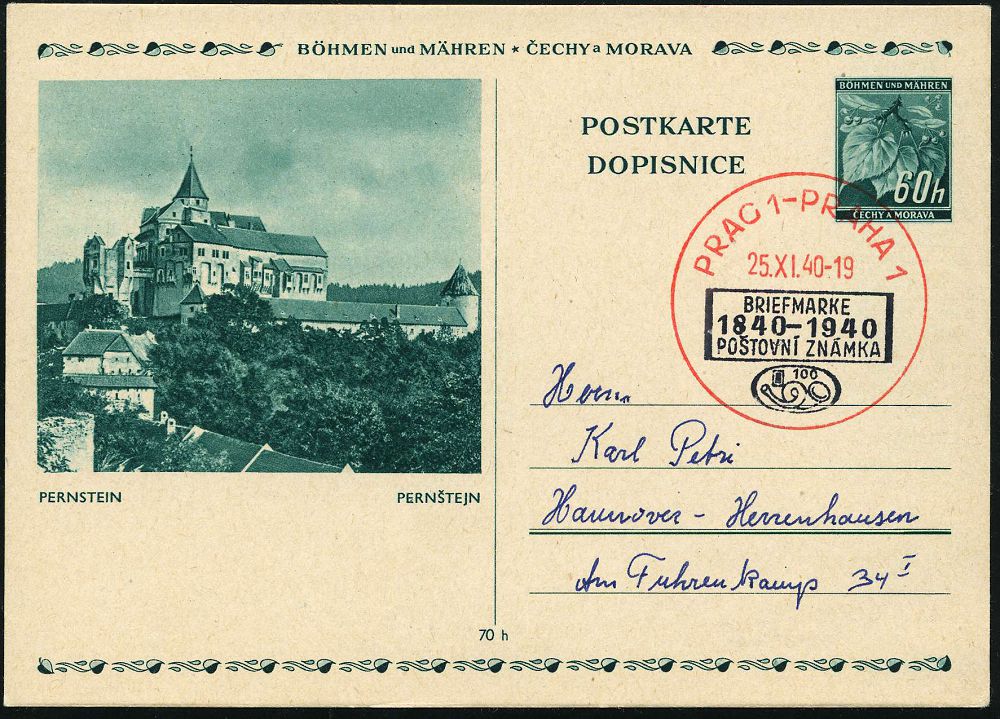 BÖHMEN und MÄHREN * ČECHY a MORAVA
POSTKARTE
DOPISNICE
BÖHMEN UND MÄHREN
60h
ČECHY A MORAVA
PRAG 1-PRAHA 1
25.XI.40-19
BRIEFMARKE
1840-1940
POŠTOVNÍ ZNÁMKA
100
Herrn
Karl Petri
Hannover - Herrenhausen
Am Fuhrenkamp 34 I
PERNSTEIN PERNŠTEJN
70 h